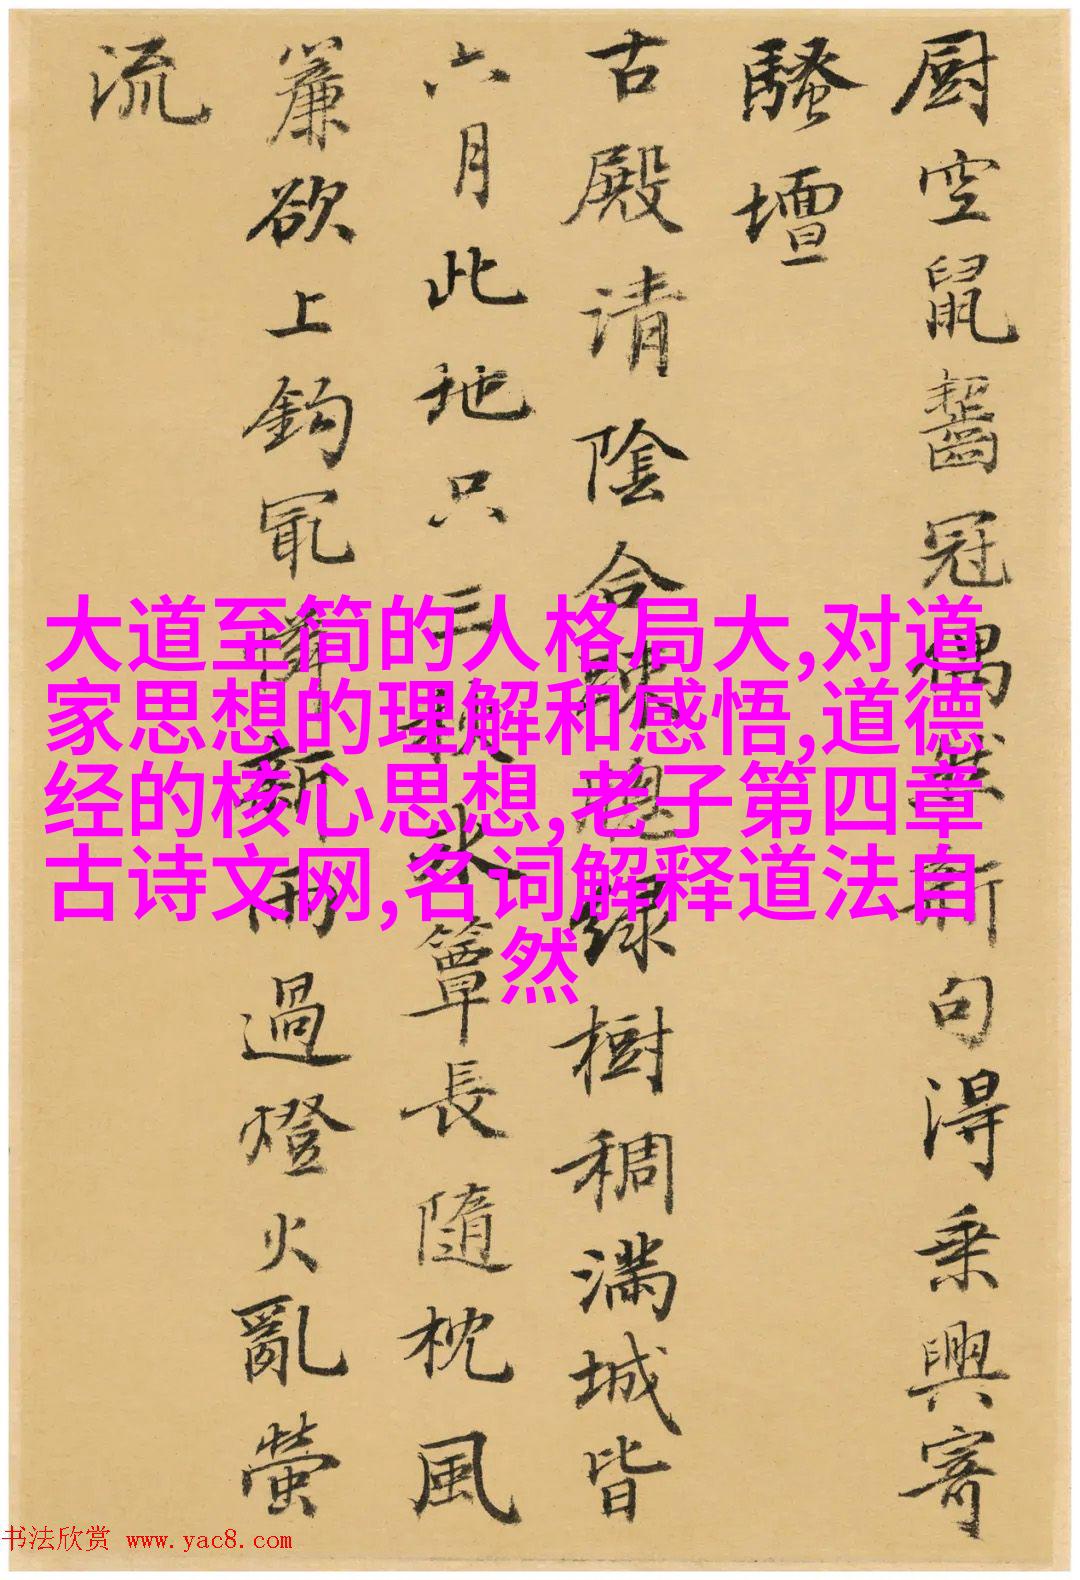 厨空鼠齧冠偶然新句得乗興寄
騷壇
古殿清陰合疎窓緑樹稠滿城皆
六月此地只三秋冰簟長隨枕風
簾欲上鈎冣憐新雨過燈火亂螢
流
大道至简的人格局大,对道
家思想的理解和感悟,道德
经的核心思想,老子第四章
古诗文网,名词解释道法自
然
书法欣赏 www.yac8.com